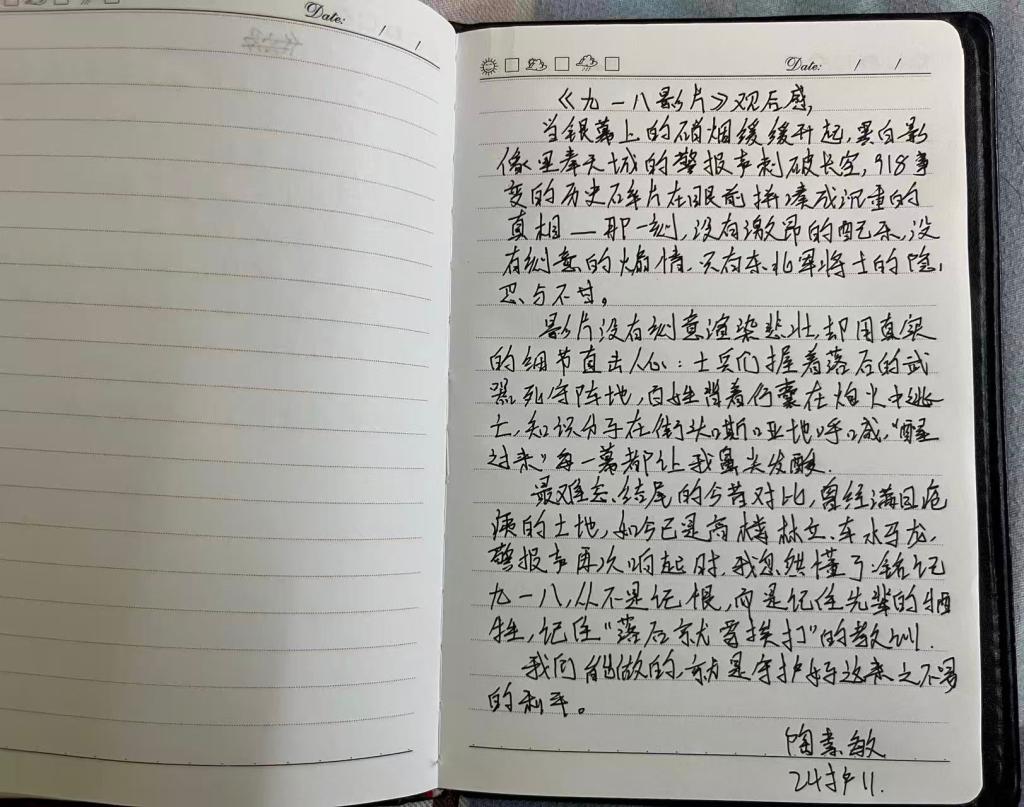 Date: / /
Date: / /
《九一八影片》观后感,
当银幕上的硝烟缓缓升起,黑白影
像里奉天城的警报声刺破长空,918事
变的历史碎片在眼前拼凑成沉重的
真相——那一刻,没有激昂的配乐,没
有刻意的煽情,只有东北军将士的隐
忍与不甘。
影片没有刻意渲染悲壮,却用真实
的细节直击人心:士兵们握着落后的武
器死守阵地,百姓背着行囊在炮火中逃
亡,知识分子在街头嘶哑地呼喊,“醒
过来”每一幕都让我鼻头发酸.
最难忘、结尾的今昔对比,曾经满目疮
痍的土地,如今已是高楼林立、车水马龙,
警报声再次响起时,我忽然懂了:铭记
九一八,从不是记恨,而是记住先辈的牺
牲,记住“落后就要挨打”的教训.
我们能做的,就是守护好这来之不易
的和平。
陶素敏
24护11.